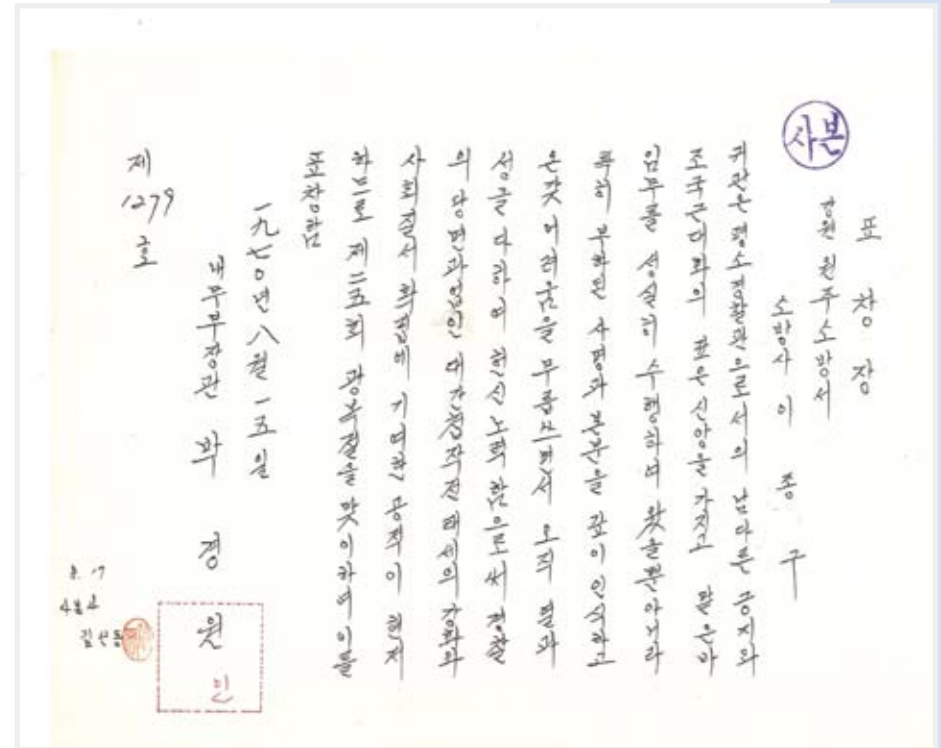 사본
표창장
강원 원주소방서
소방사 이종구
귀관은 평소 경찰관으로서의 남다른 긍지와
조국근대화의 높은 신앙을 가지고 맡은바
임무를 성실히 수행하여 왔을뿐아니라
특히 부하된 사명과 본분을 깊이 인식하고
온갖 어려움을 무릅쓰면서 오직 열과
성을 다하여 헌신노력함으로써 경찰
의 당면과업인 대간첩작전태세의 강화와
사회질서 확립에 기여한 공적이 현저
하므로 제二五회 광복절을 맞이하여 이를
표창함
一九七0년 八월 一五일
내무부장관 박경원
인
제1279호
8. 17
김선동